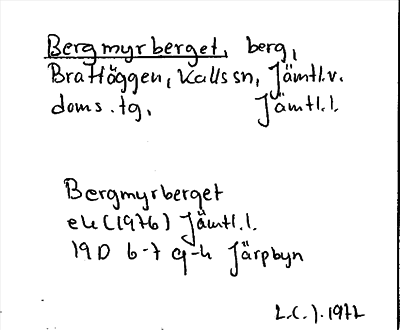 Bergmyrberget, berg,
Brattöggen, Kalls sn, Jämtl.v.
doms.tg, Jämtl.l.
Bergmyrberget
ek (1976) Jämtl.l.
19D 6-7 g-h Järpbyn
1977